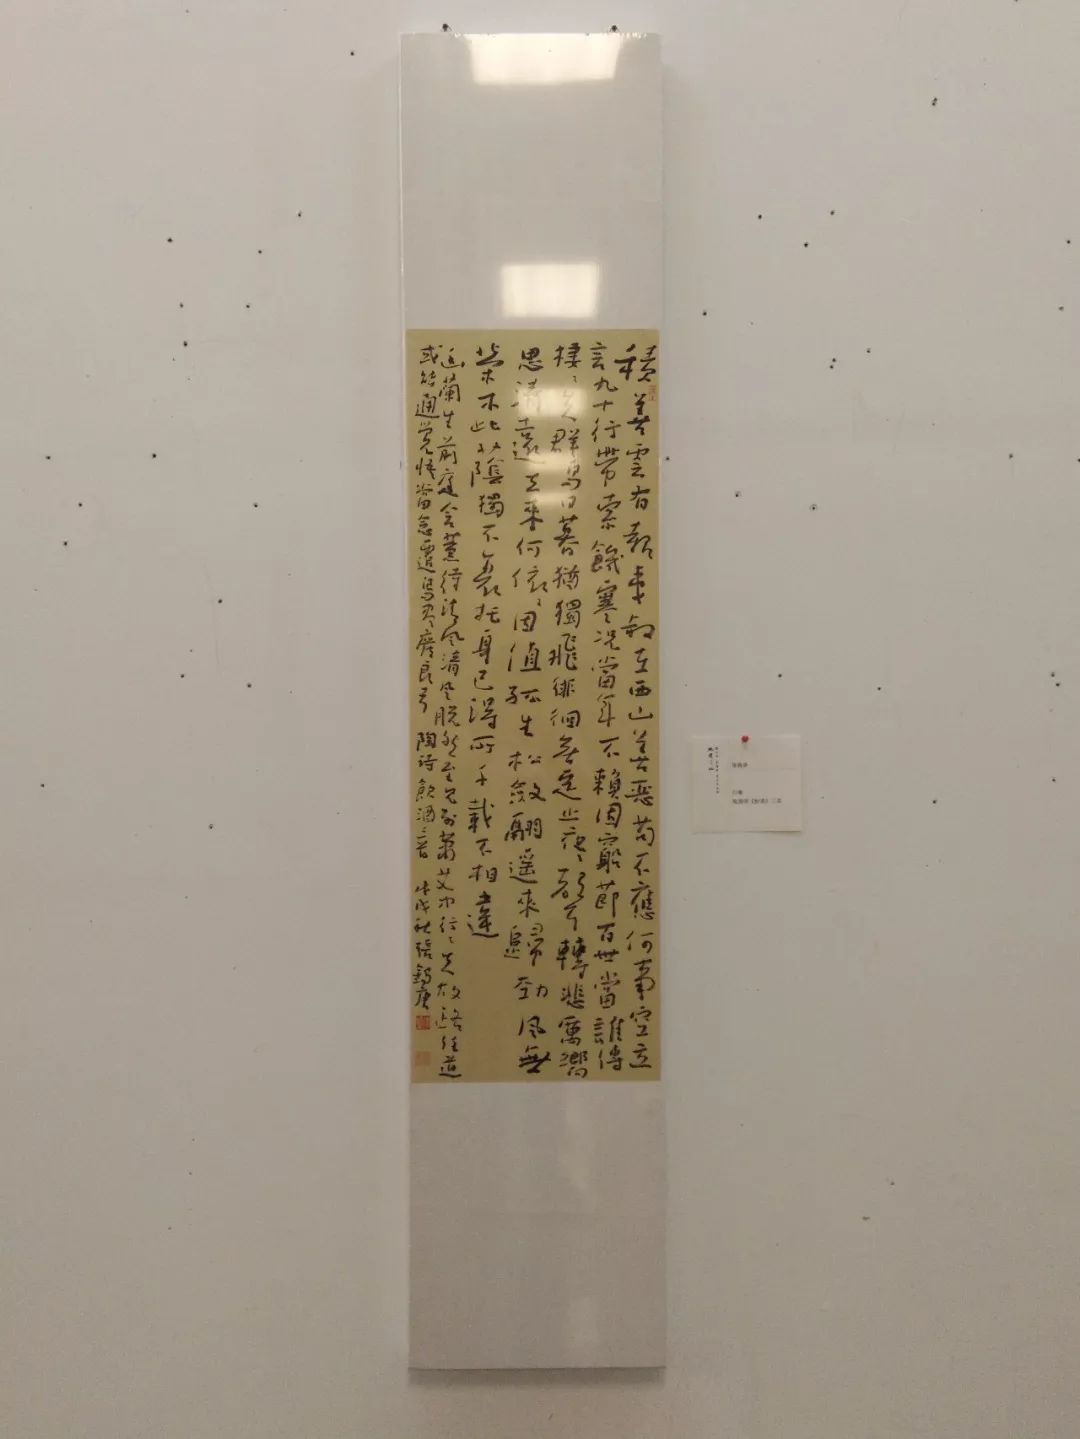 積善雲有報夷叔在西山善惡苟不應何事空立
言九十行帶索饑寒況當年不賴固窮節百世當誰傳
棲々失群鳥日暮猶獨飛徘徊無定止夜々聲轉悲厲響
思清遠去來何依々因值孤生松斂翮遥來歸勁風無
榮木此蔭獨不衰托身已得所千載不相違
幽蘭生前庭含薰待清風清風脫然至見別蕭艾中行々失故路任道
或能通覺悟當念還鳥盡廢良弓 陶詩飲酒三首 戊戌秋張錫庚